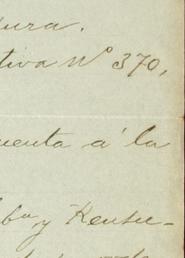 dura.
tiva Nº 370,
uenta á la
ba, y Kensu-